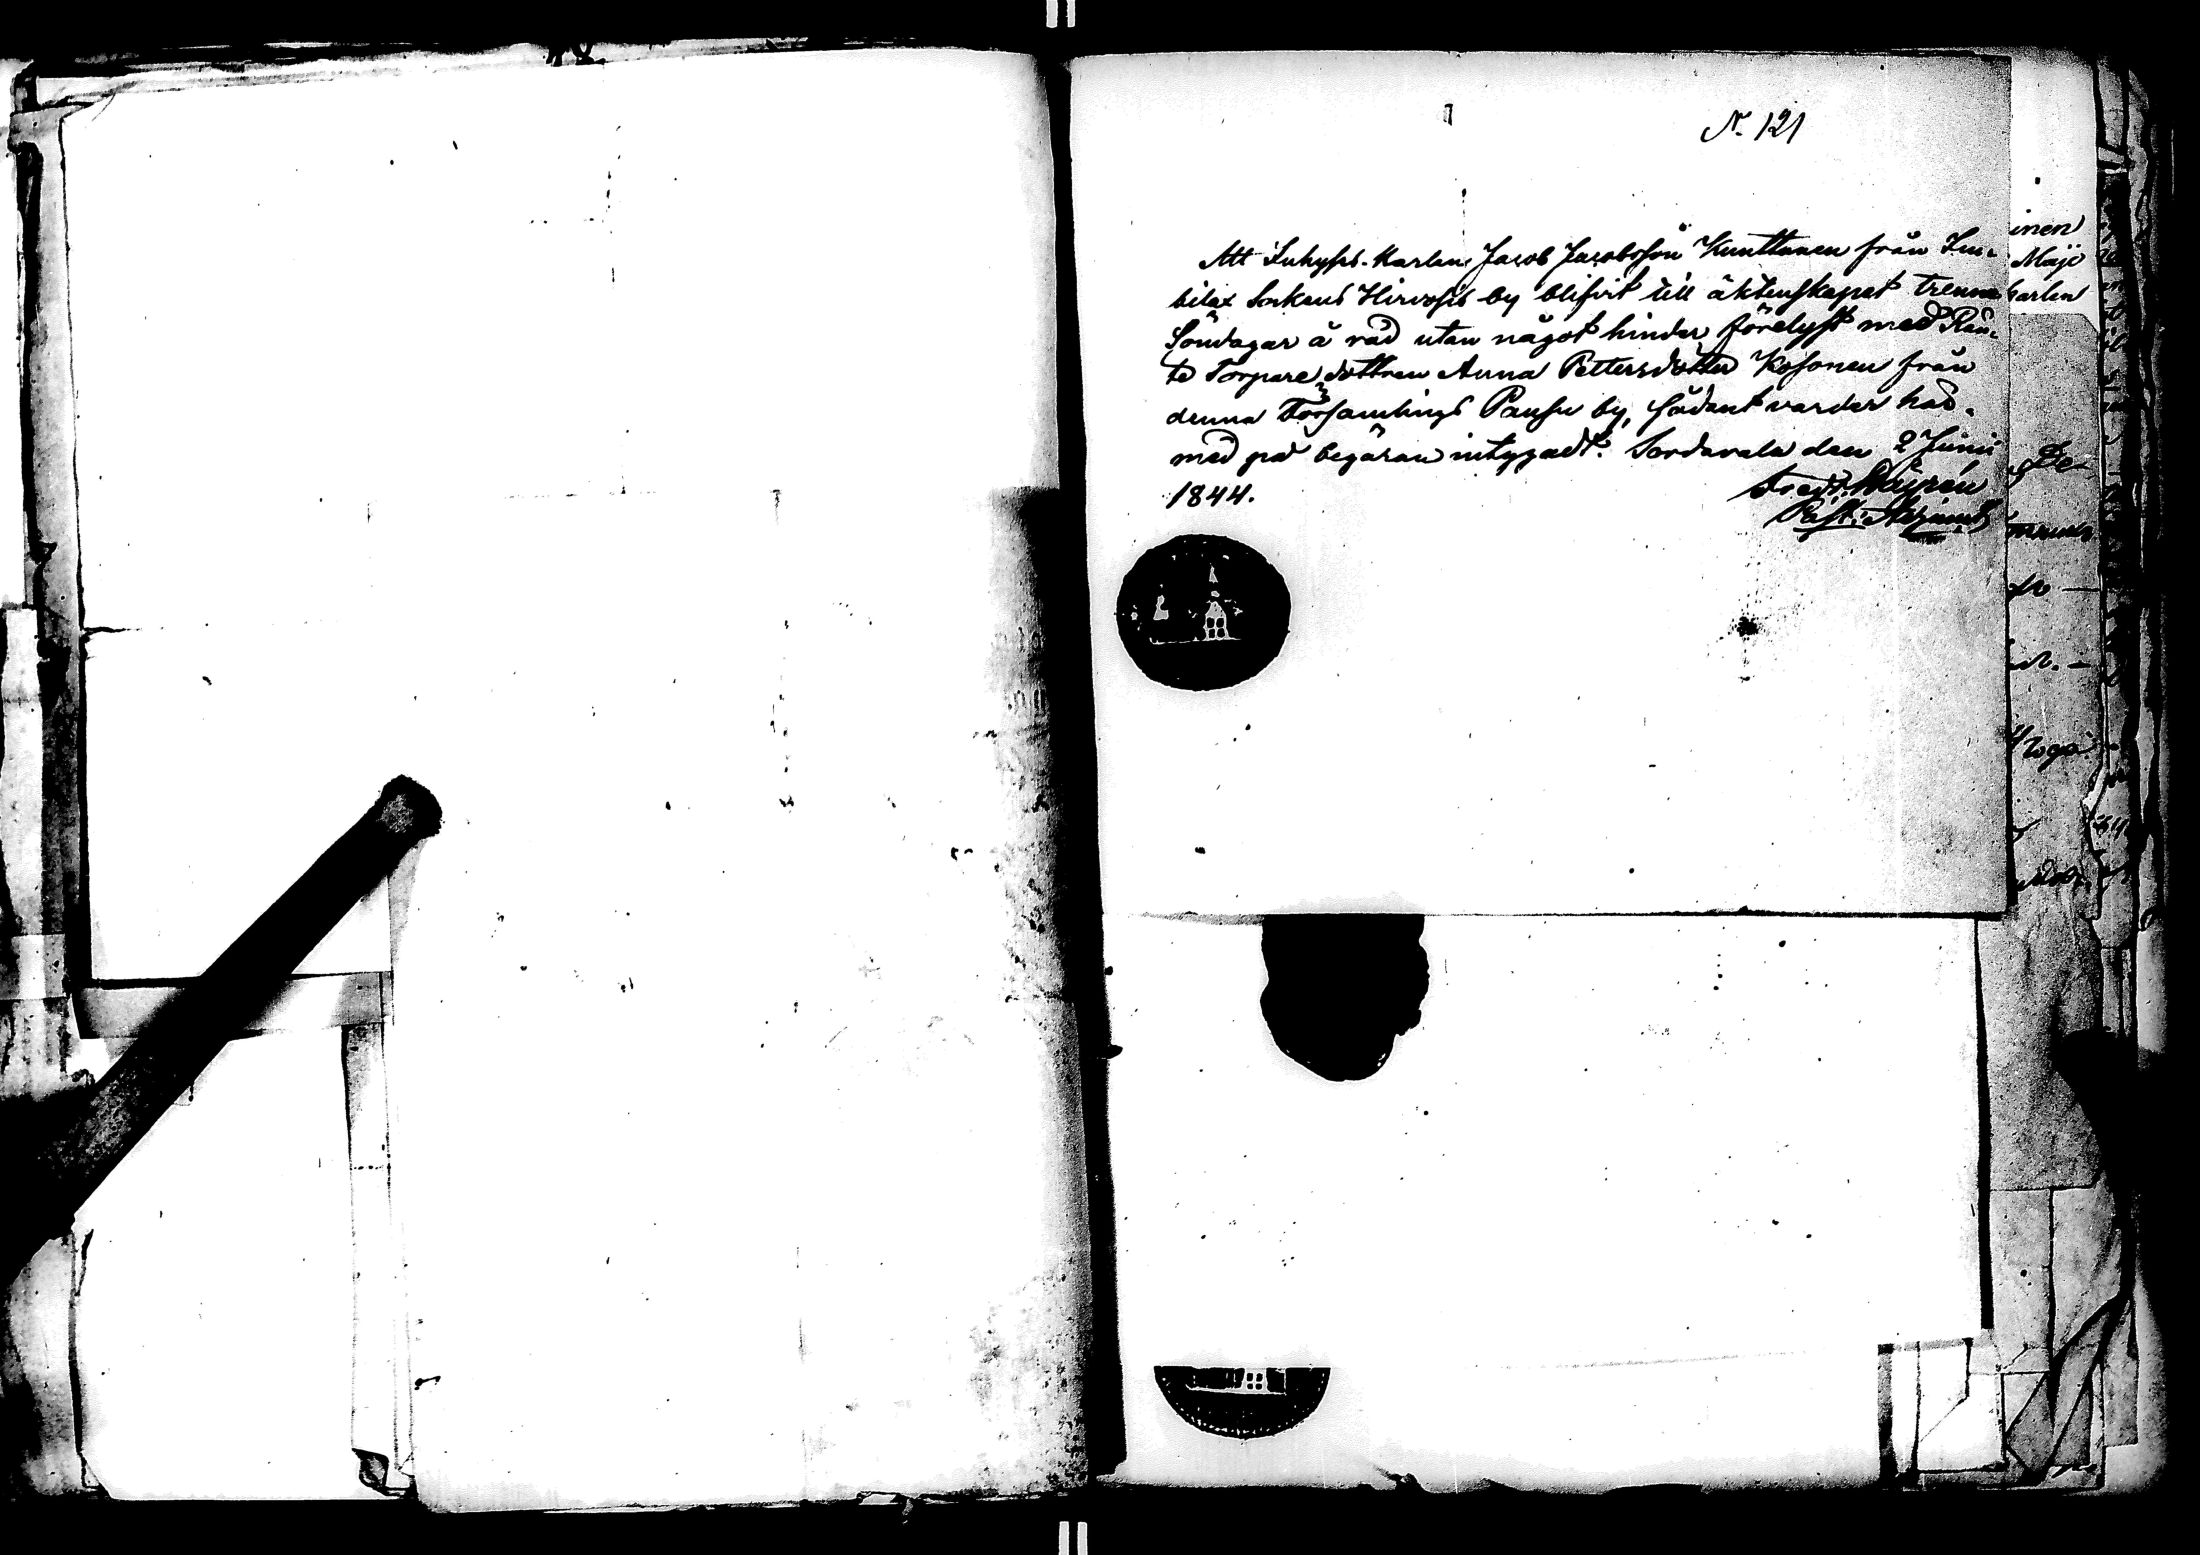 N. 121
Att Inhyses-Karlen Jacob Jacobsson Kunttanen från Im-
bilax Sockens Hirvosis by blifvit till äktenskapet trenne
Söndagar å rad utan något hinder förelyst med Rän-
te Torpare dottren Anna Pettersdotter Kosonen från
denna Församlings Pausu by, sådant varder här-
med på begäran intygadt. Sordavala den 2 Junii
1844.
Past: Adjunct
inen
Maje
karlen
De-